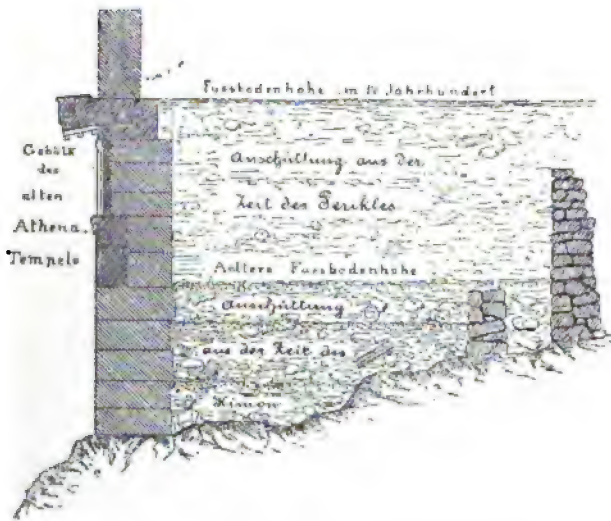 Fussbodenhöhe im Jahrhundert
Gebälk
des
alten
Athena
Tempels
Anschüttung aus der
Zeit des Perikles
Aeltere Fussbodenhöhe
Anschüttung
aus der Zeit des
Kimon